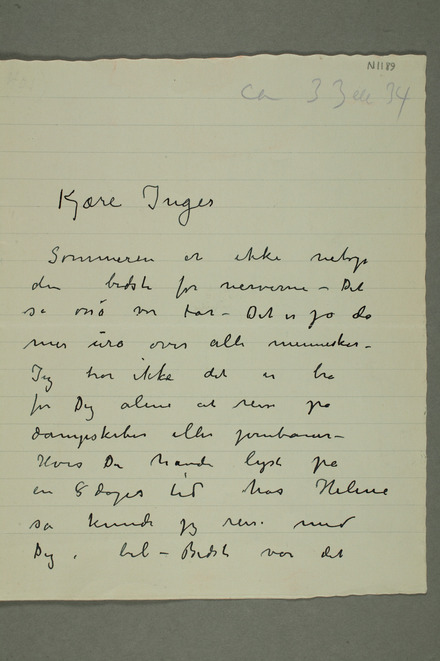 N1189
ca 3 33 ell 34
Kjære Inger
Sommeren er ikke netop
den bedste for nerverne – Det
sa også vor Far – Det er jo da
mer uro over alle mennesker –
Jeg tror ikke det er bra
for Dig alene at reise på
dampskibe eller jernbaner –
Hvis Du havde lyst på
en 8 dages tid hos Helene
så kunde jeg reise med
Dig i bil – Bedst var det